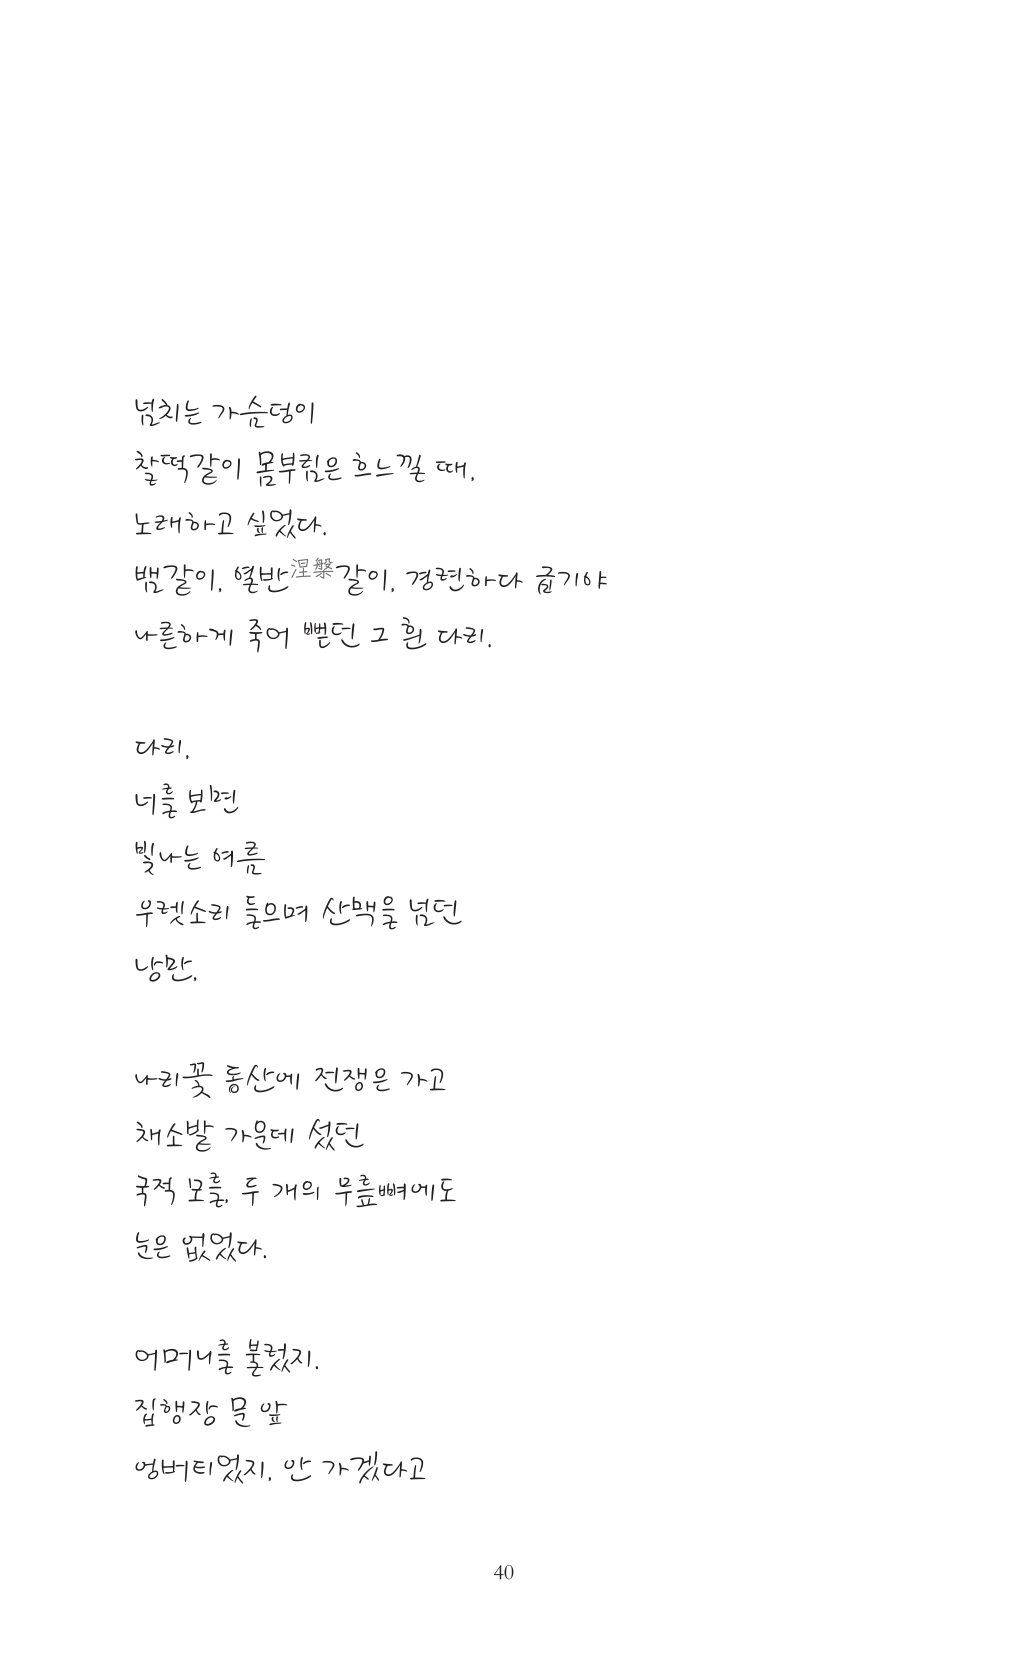 넘치는 가슴덩이
찰떡같이 몸부림은 흐느낄 때,
노래하고 싶었다.
뱀같이, 열반涅槃같이, 경련하다 급기야
나른하게 죽어 뻗던 그 흰 다리.
다리,
너를 보면
빛나는 여름
우렛소리 들으며 산맥을 넘던
낭만,
나리꽃 동산에 전쟁은 가고
채소밭 가운데 섰던
국적 모를, 두 개의 무릎뼈에도
눈은 없었다.
어머니를 불렀지.
집행장 문 앞
엉버티었지, 안 가겠다고
40